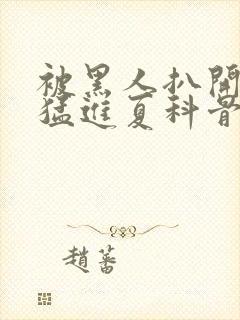 被黑人扒開
猛進夏科昔
趙蕃